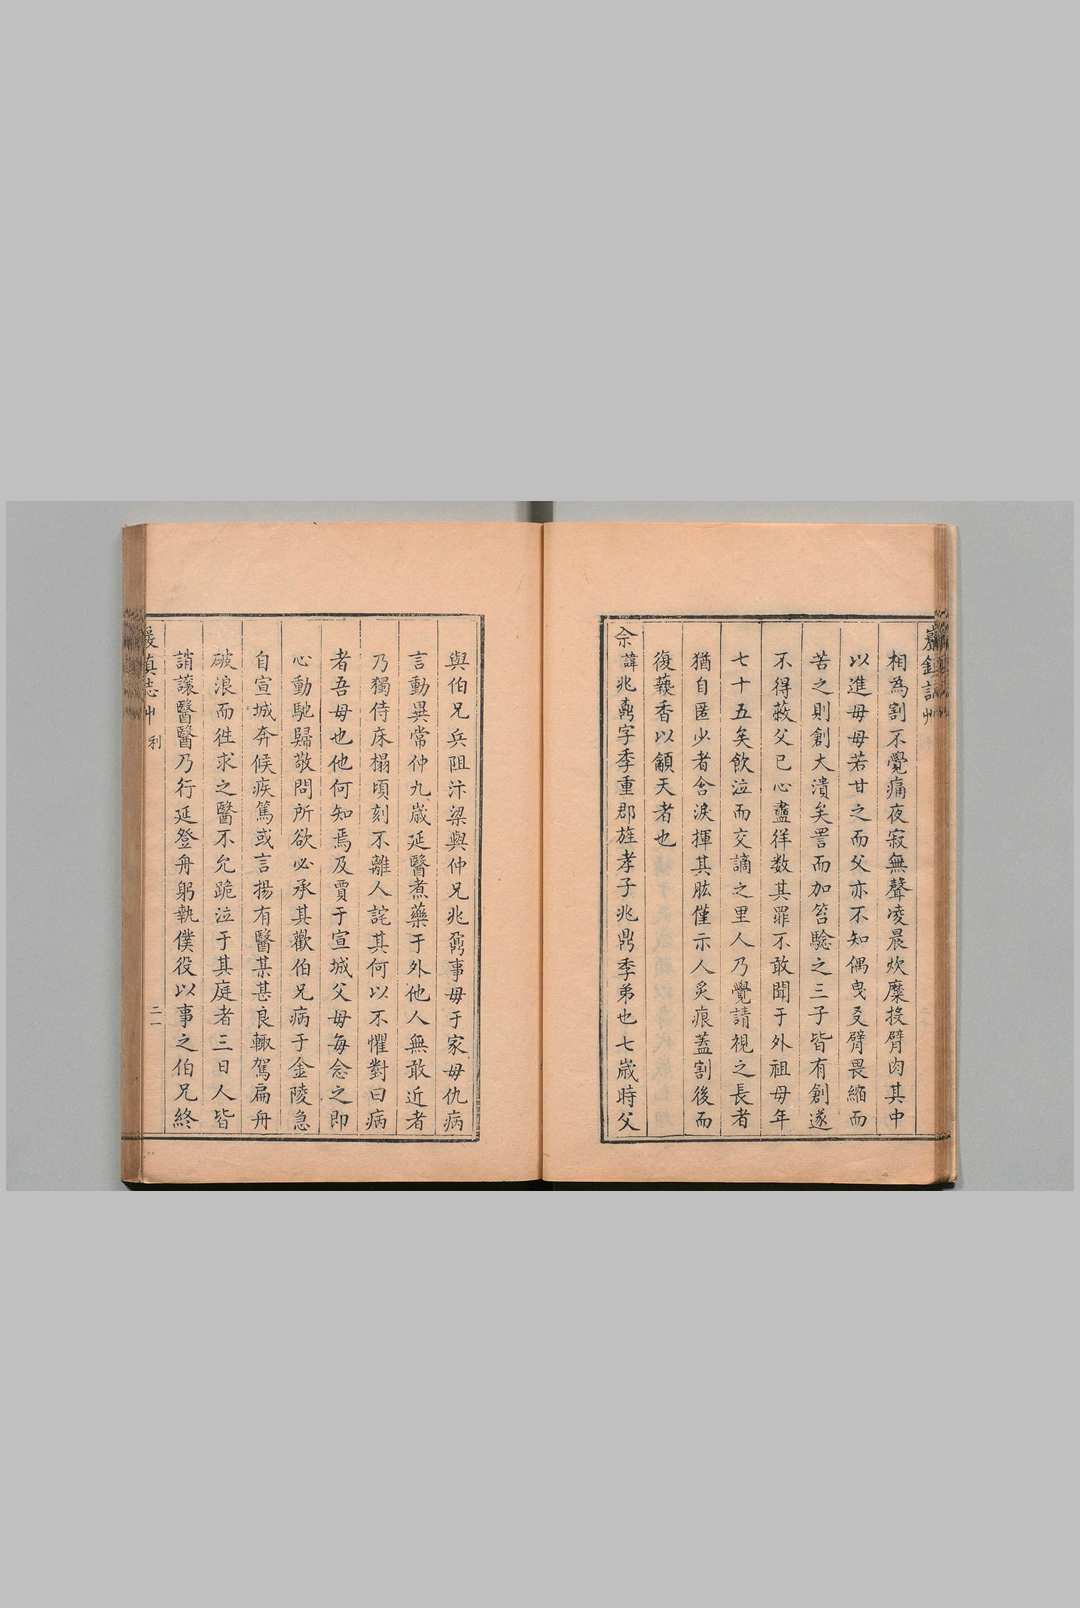 巖鎮志艸
相為割不覺痛夜寂無聲凌晨炊糜投臂肉其中
以進母母若甘之而父亦不知偶曳㕛臂畏縮而
苦之則創大潰矣詈而加笞驗之三子皆有創遂
不得蔽父已心盡徉数其罪不敢聞于外祖母年
七十五矣飲泣而交謫之里人乃覺請視之長者
猶自匿少者含淚揮其肱僅示人炙痕蓋割後而
復蓺香以籲天者也
佘諱兆鼒字季重郡旌孝子兆鼎季弟也七歲時父
與伯兄兵阻汴梁與仲兄兆鼐事母于家母仇病
言動異常仲九歲延醫煮藥于外他人無敢近者
乃獨侍床榻頃刻不離人詫其何以不懼對曰病
者吾母也他何知焉及賈于宣城父母每念之即
心動馳歸敬問所欲必承其歡伯兄病于金陵急
自宣城奔候疾篤或言揚有醫某甚良輙駕扁舟
破浪而徃求之醫不允跪泣于其庭者三日人皆
誚讓醫醫乃行延登舟躬執僕役以事之伯兄終
巖鎮志艸 利 二一